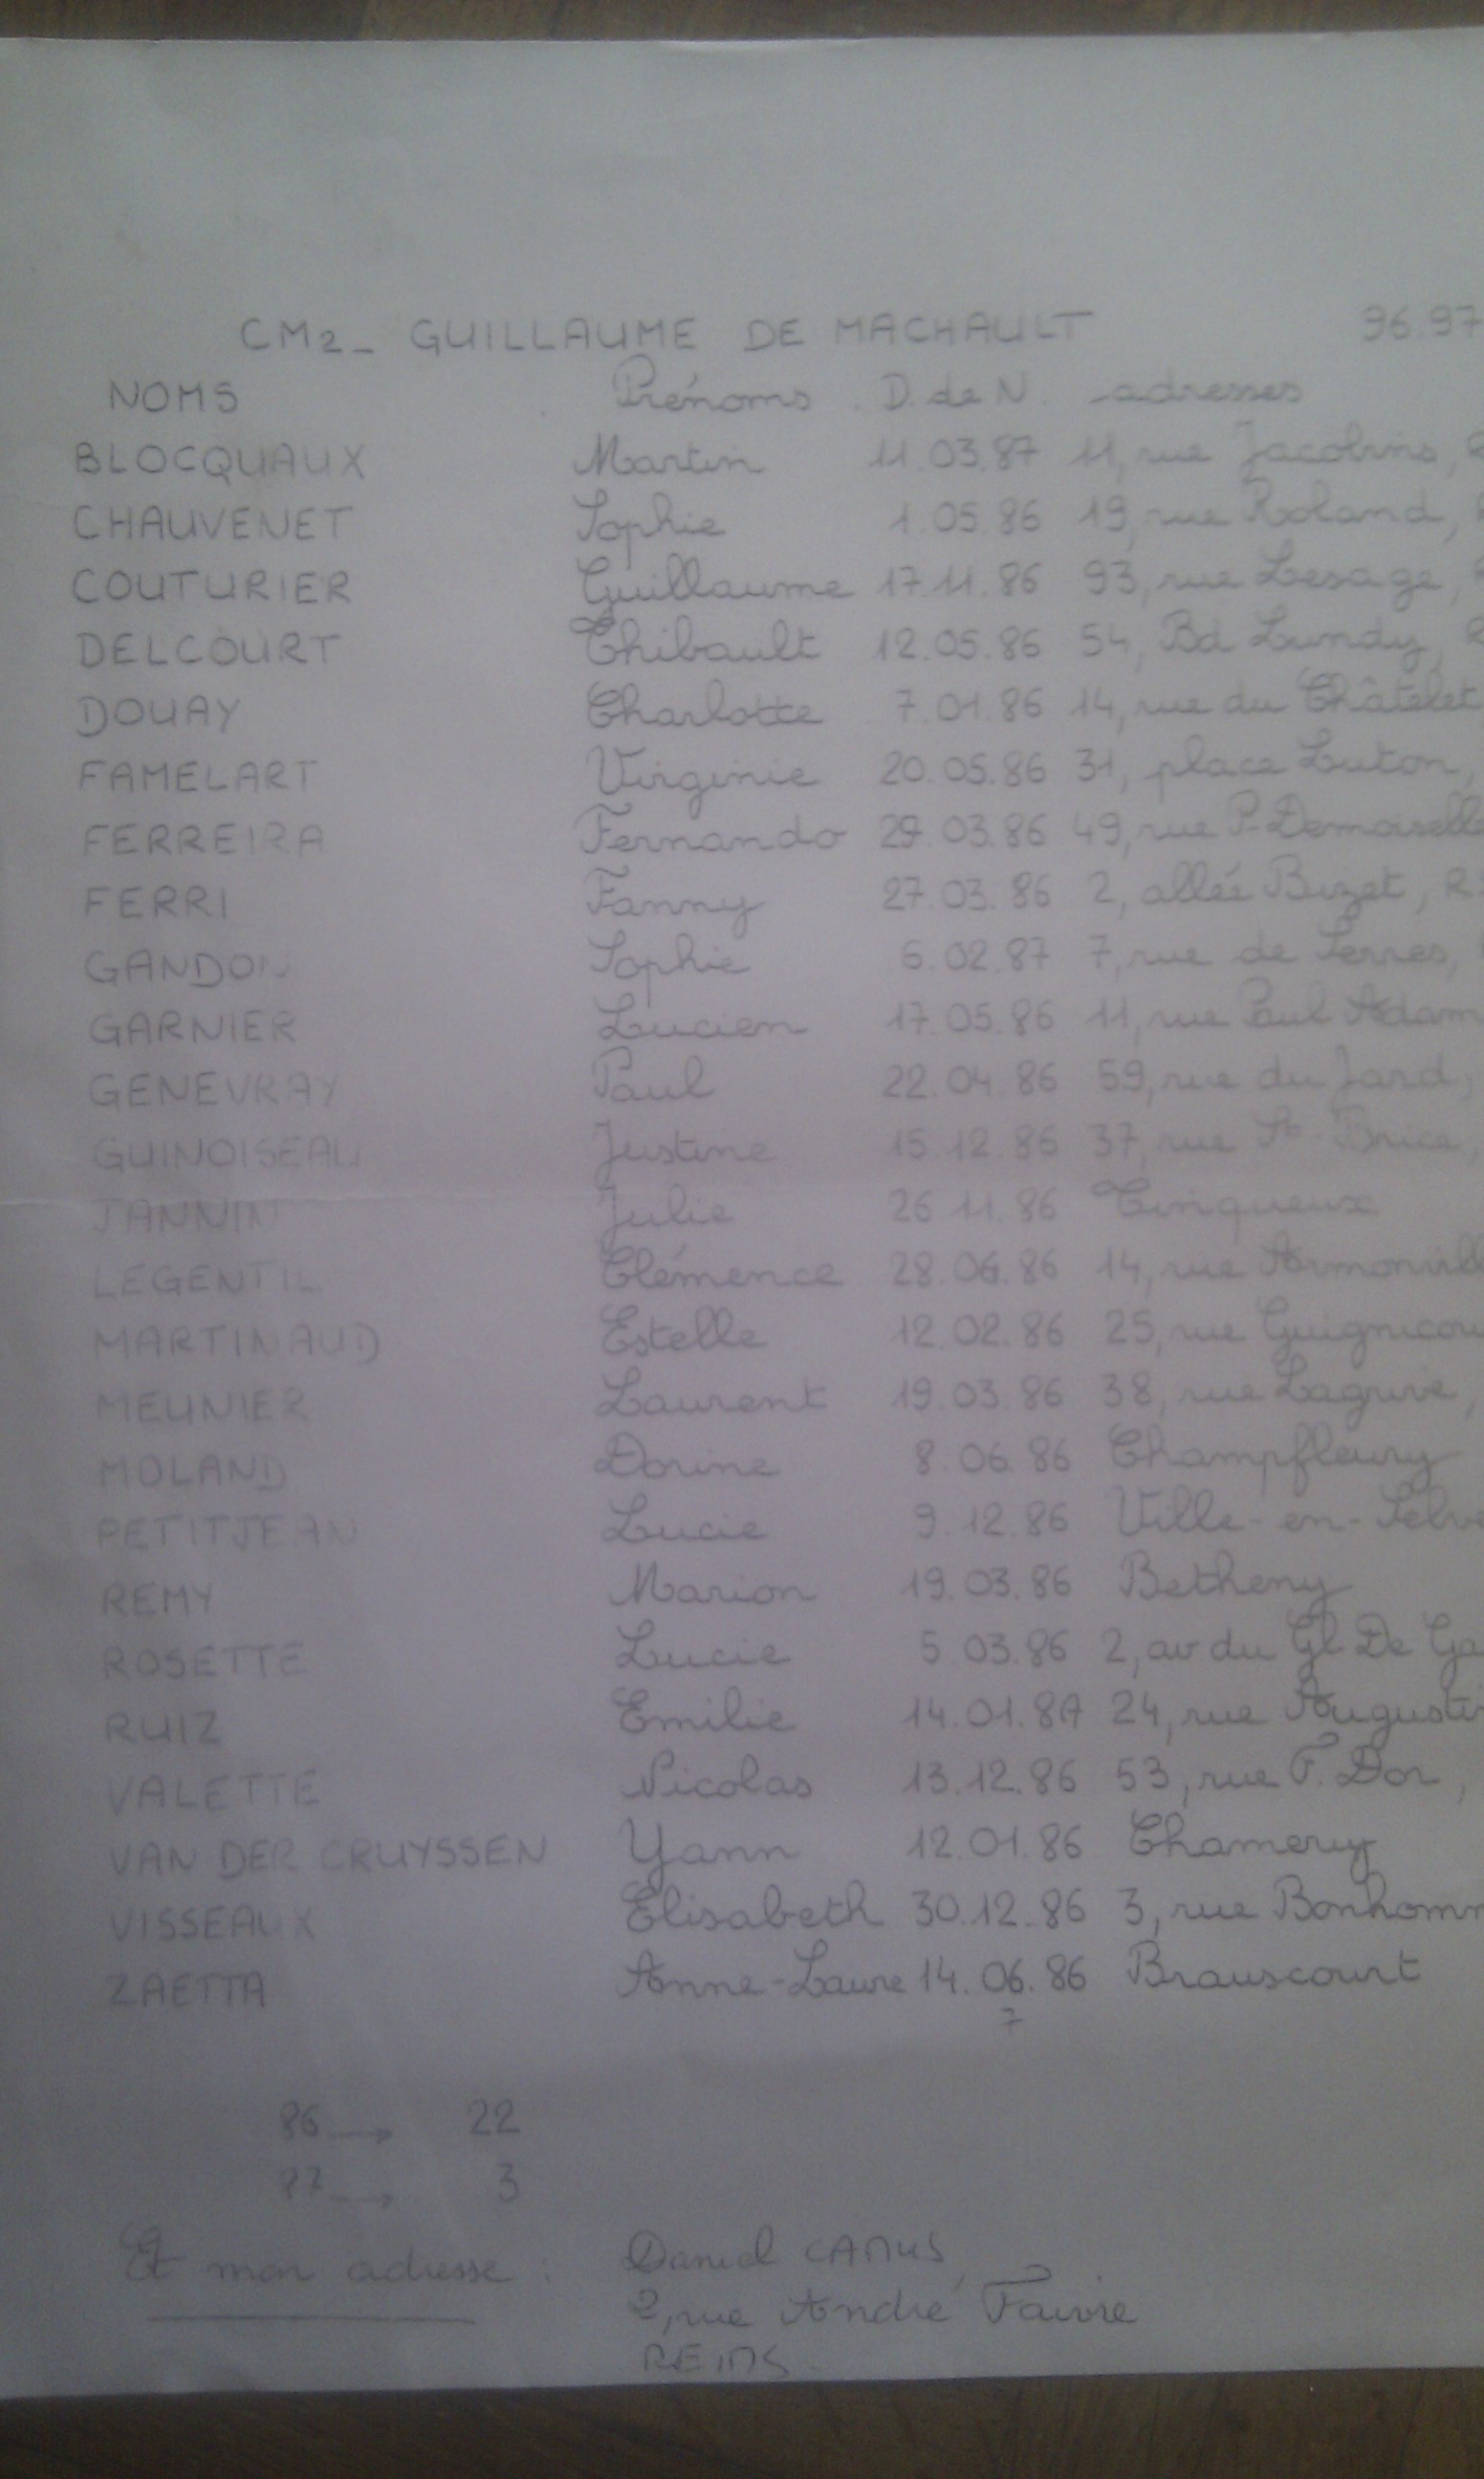 CM2_ GUILLAUME DE MACHAULT 96.97
NOMS Prénoms D. de N. adresses
BLOCQUAUX Martin 11.03.87 11, rue Jacobins,
CHAUVENET Sophie 1.05.86 19, rue Roland,
COUTURIER Guillaume 17.11.86 93, rue Lesage,
DELCOURT Thibault 12.05.86 54, Bd Lundy,
DOUAY Charlotte 7.01.86 14, rue du Châtelet
FAMELART Virginie 20.05.86 31, place Luton,
FERREIRA Fernando 29.03.86 49, rue P. Demoisell
FERRI Fanny 27.03.86 2, allée Bizet, R
GANDON Sophie 6.02.87 7, rue de Serres,
GARNIER Lucien 17.05.86 11, rue Paul Adam
GENEVRAY Paul 22.04.86 59, rue du Jard,
GUINOISEAU Justine 15.12.86 37, rue St-Brice,
JANNIN Julie 26.11.86 Tinqueux
LEGENTIL Clémence 28.06.86 14, rue Armonvill
MARTINAUD Estelle 12.02.86 25, rue Guignicou
MEUNIER Laurent 19.03.86 38, rue Lagrive,
MOLAND Dorine 8.06.86 Champfleury
PETITJEAN Lucie 9.12.86 Ville-en-Selve
REMY Marion 19.03.86 Betheny
ROSETTE Lucie 5.03.86 2, av du Gl De Ga
RUIZ Emilie 14.01.87 24, rue Augusti
VALETTE Nicolas 13.12.86 53, rue F. Dor,
VAN DER CRUYSSEN Yann 12.01.86 Chamery
VISSEAUX Elisabeth 30.12.86 3, rue Bonhomm
ZAETTA Anne-Laure 14.06.86 Brauscourt
7
86 → 22
87 → 3
Et mon adresse : Daniel CAMUS,
2, rue André Faivre
REIMS